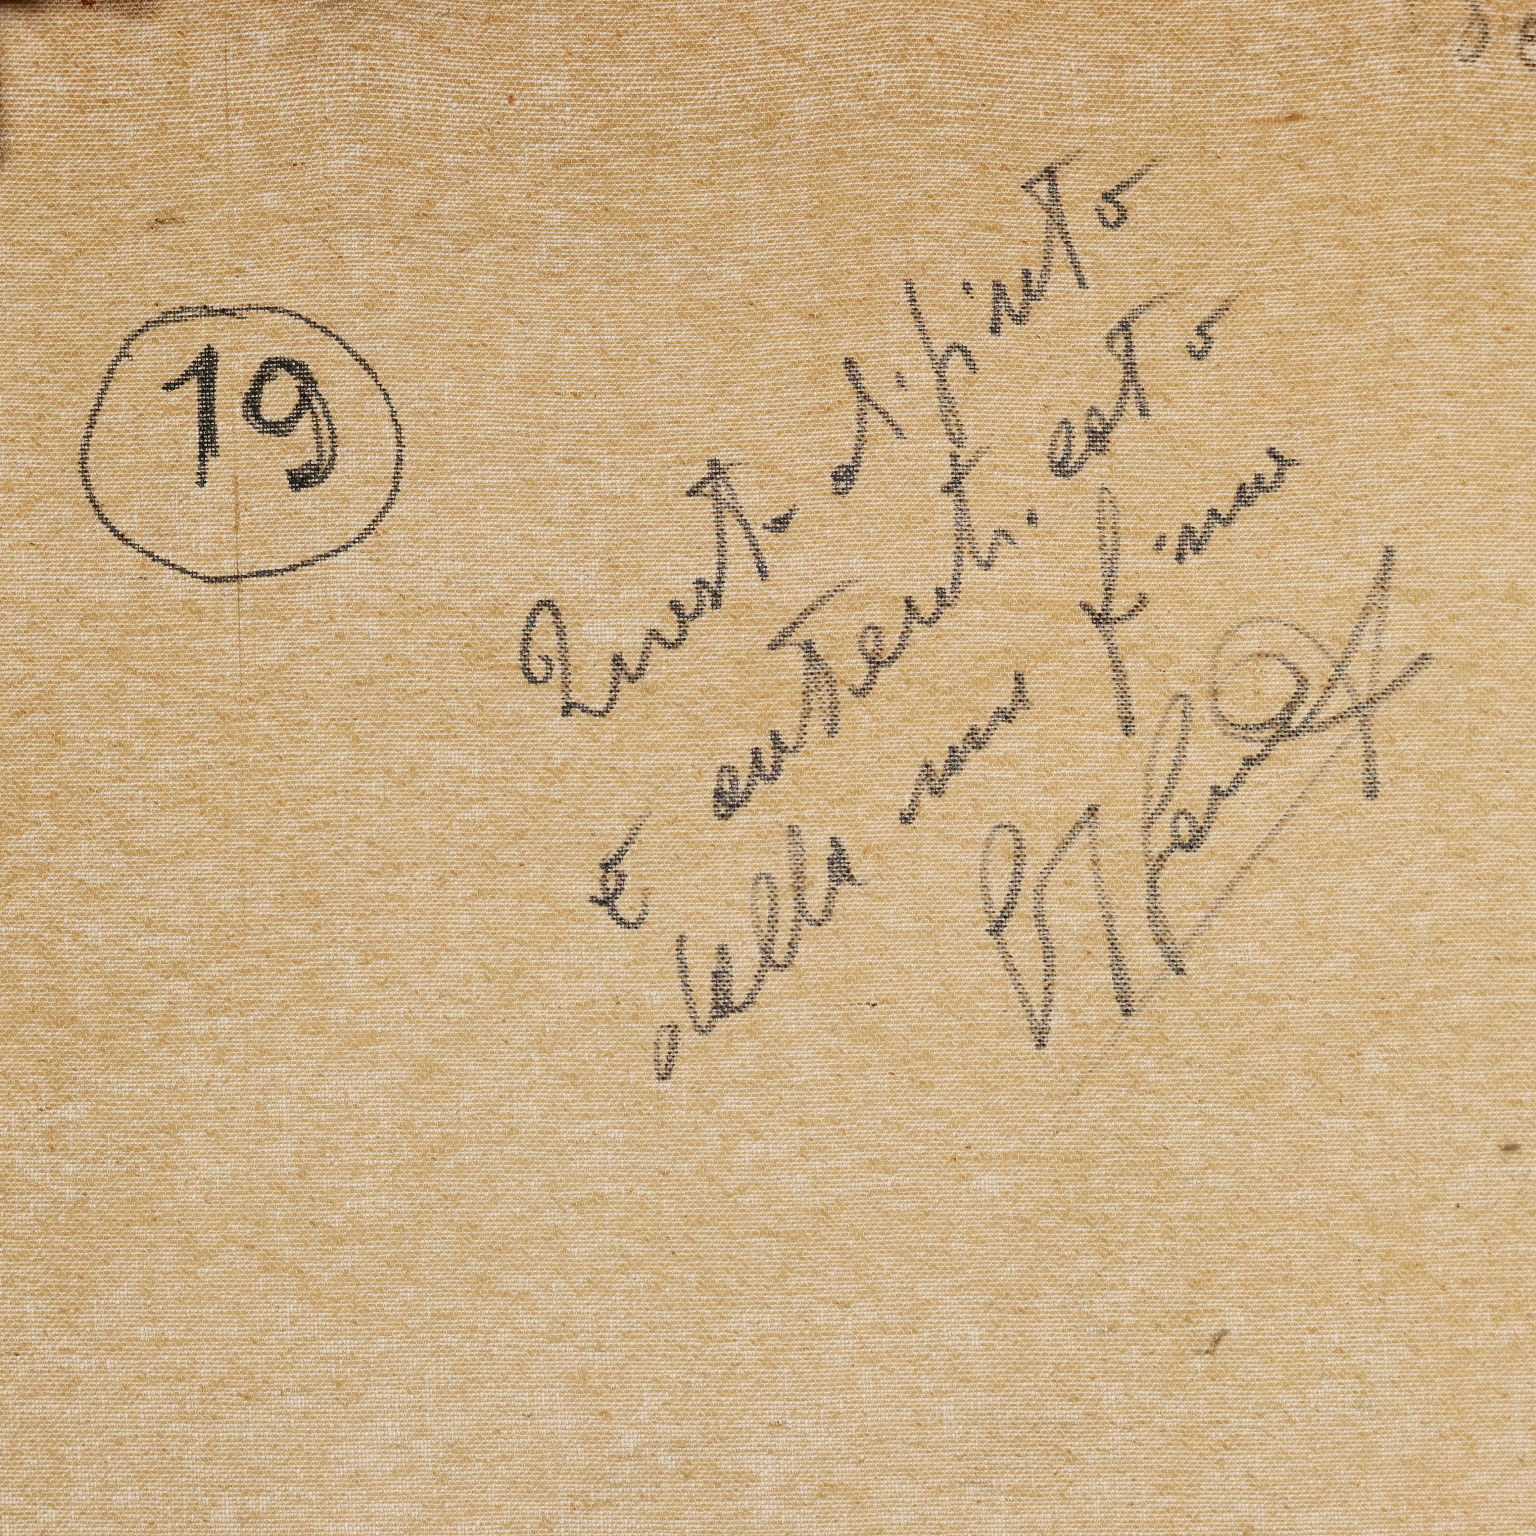 19
Questo dipinto
è autenticato
dalla mia firma